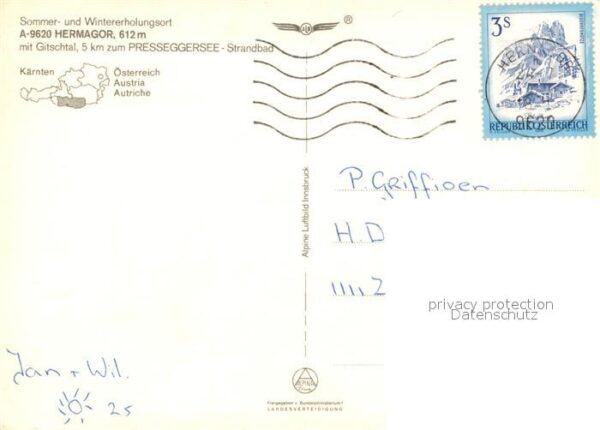 Sommer- und Wintererholungsort
A-9620 HERMAGOR, 612 m
mit Gitschtal, 5 km zum PRESSEGGERSEE - Strandbad
Kärnten
Österreich
Austria
Autriche
3 S
REPUBLIK ÖSTERREICH
9620
Alpine Luftbild Innsbruck
P. Griffioen
H.D
privacy protection
Datenschutz
Jan + Wil.
25
ALPINE
Freigegeben v. Bundesministerium f.
LANDESVERTEIDIGUNG